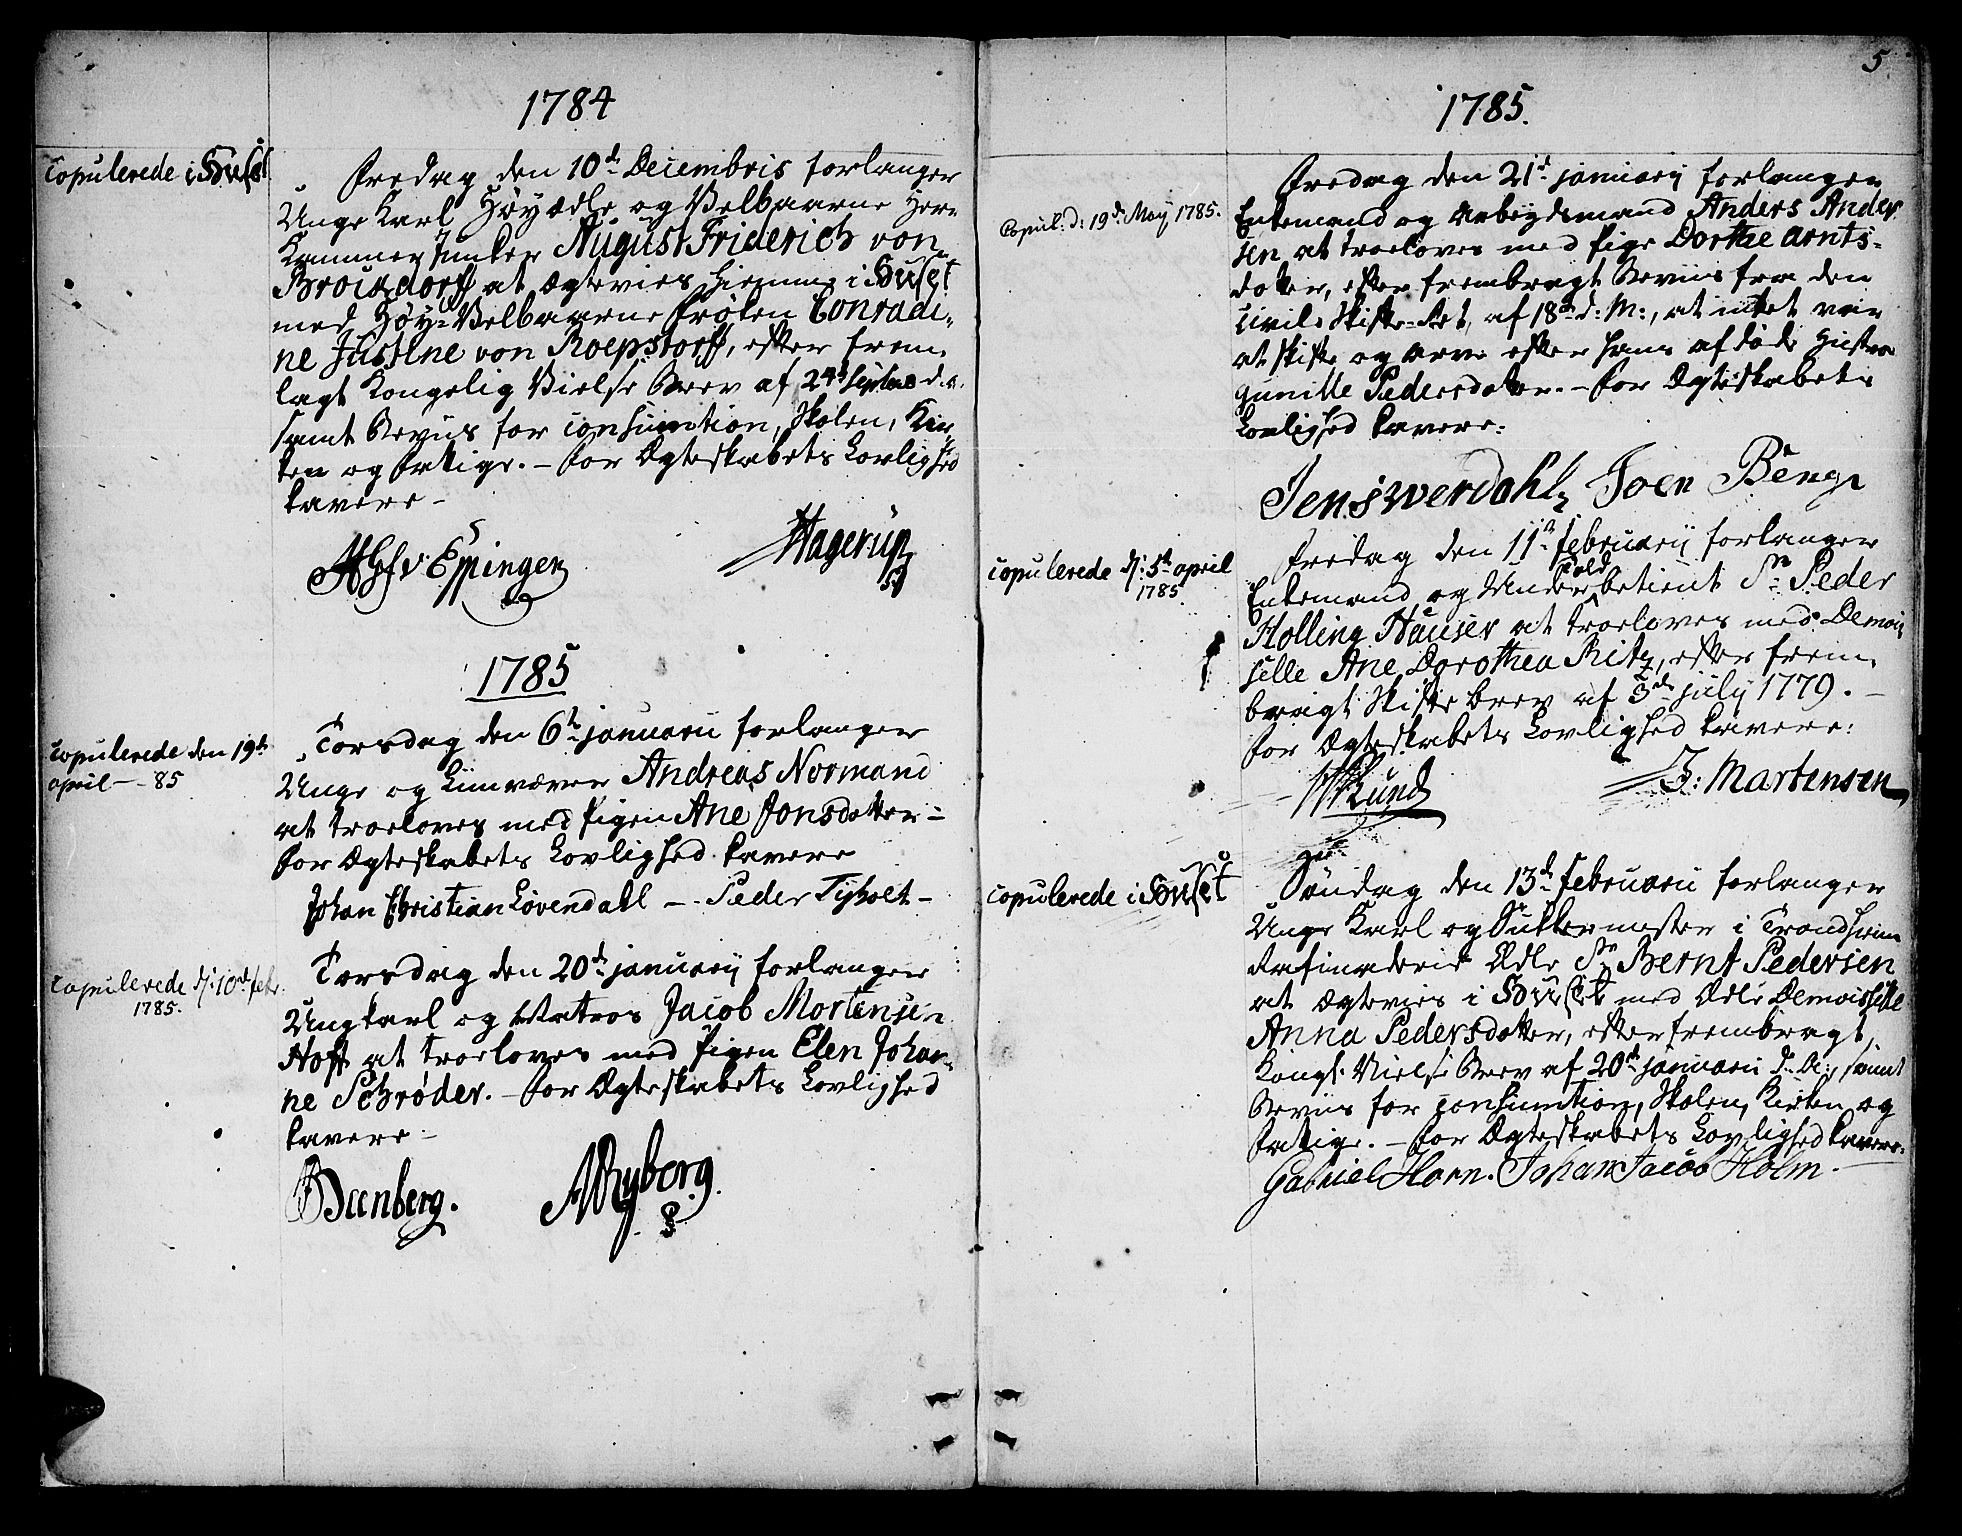 1784
Copulerede i Huset
Fredag den 10de Decembris forlanger
Unge Karl Høyædle og Velbaarne Herr
Kammer Junker August Friderich von
Brouzdorff at Ægtevies hiemme i Huset
med Høy-Velbaarne Frøken Conradi,,
ne Justine von Roepstorff, efter frem,,
lagt Kongelig Vielse Brev af 24de Septbr d. a.
samt Beviis for Consumtion, Skolen, Kir
ken og Fattige. - For Ægteskabets Lovlighed
cavere -
v: Eppingen Hagerup
1785
Copulerede den 19de
april - 85
Torsdag den 6te januarii forlanger
Unge og Liinvæver Andreas Normand
at troeloves med Pigen Ane Jonsdatter -
For Ægteskabets Lovlighed cavere
Johan Christian Lövendahl - Peder Tyholt -
Copulerede d: 10de febr:
1785.
Torsdag den 20de januarii forlanger
Ungkarl og Matros Jacob Mortensen
Hoff at troeloves med Pigen Elen Johan,,
ne Schrøder. - For Ægteskabets Lovlighed
cavere -
Beenberg. Ryborg.
5
1785.
Copul: d: 19de May 1785.
Fredag den 21de januarij forlanger
Enkemand og Arbeydsmand Anders Ander
sen at troeloves med Pige Dorthe Arnts-
datter, efter frembragt Beviis fra den
Civile Skifte-Ret, af 18de d: M:, at intet var
at skifte og arve efter hans afdøde Hustru
Gunille Pedersdatter. - For Ægteskabets
Lovlighed cavere:
Jens Werdahl Joen Beng
Copulerede d: 5te april
1785.
Fredag den 11te februarij forlanger
Enkemand og Under Told betient Sr Peder
Holling Hauser at troeloves med Demoi
selle Ane Dorothea Ritz, efter frem,,
bragt Skifte brev af 3de july 1779. -
For Ægteskabets Lovlighed cavere:
Lund J: Martensen
Copulerede i Huset
Søndag den 13de februarii forlanger
Unge Karl og Sukkermester i Trondhiems
Rafinaderie Ædle Sr Bernt Pedersen
at Ægtevies i Huuset med Ædle Demoisselle
Anna Pedersdatter, efter frembragt
Kongl: Vielse Brev af 20de januarii d: A:, samt
Beviis for Consumtion, Skolen, Kirken og
Fattige. - For Ægteskabets Lovlighed cavere:
Gabriel Horn. Johan Jacob Holm. -